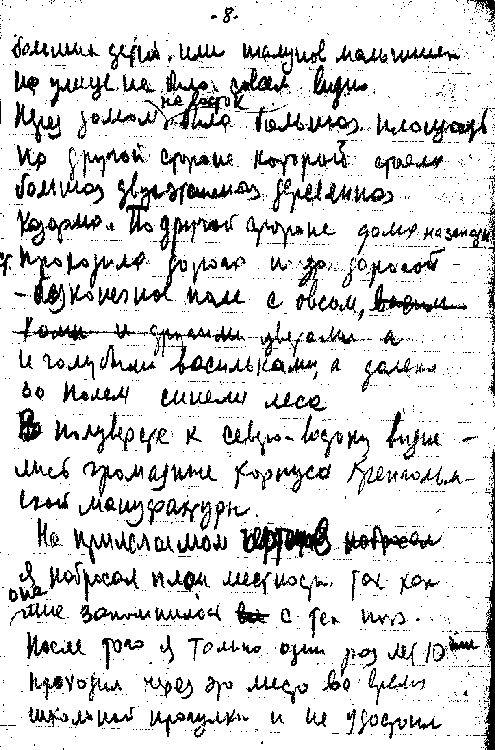 -8-
больших детей, или шалунов мальчишек
на улице не было совсем видно.
Через домом была большая площадь
на восток
на другой стороне которой стояла
большая двухэтажная деревянная
казарма. По другой стороне дома на запад
проходила дорога и за дорогой
- бесконечное поле с овсом,
и другими цветами а
и голубыми васильками, а далеко
за полем синели леса
В полуверсте к северо-востоку видне-
лись громадные корпуса Кренгольм-
ской мануфактуры.
На прилагаемом чертеже набросал
я набросал план местности так как
она
мне запомнилась с тех пор.
После того я только один раз лет 10
проходил через это место во время
школьной прогулки и не удостоил